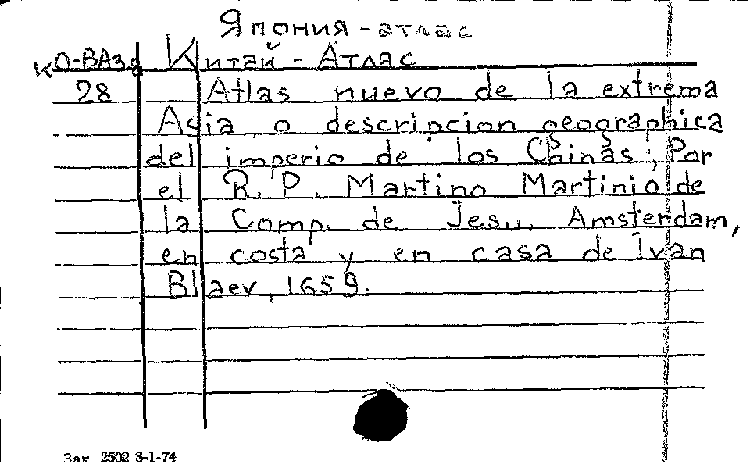 Япония - атлас
Китай - Атлас
28 Atlas nuevo de la extrema
Asia, o descripcion geographica
del imperio de los Chinas; Por
el R. P. Martino Martinio de
la Comp. de Jesu. Amsterdam,
en costa y en casa de Ivan
Blaev, 1659.
Зак. 2502 3-1-74